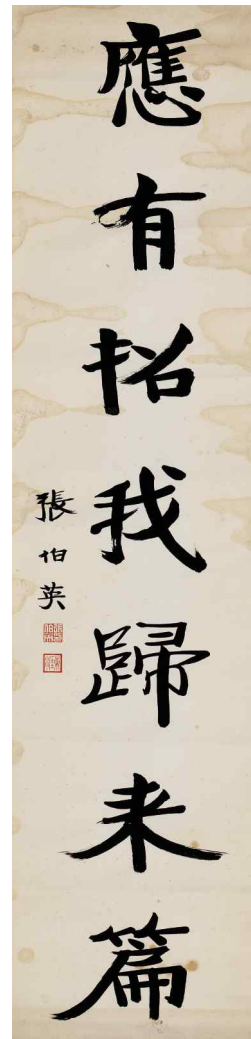 應有招我歸来篇
張伯英